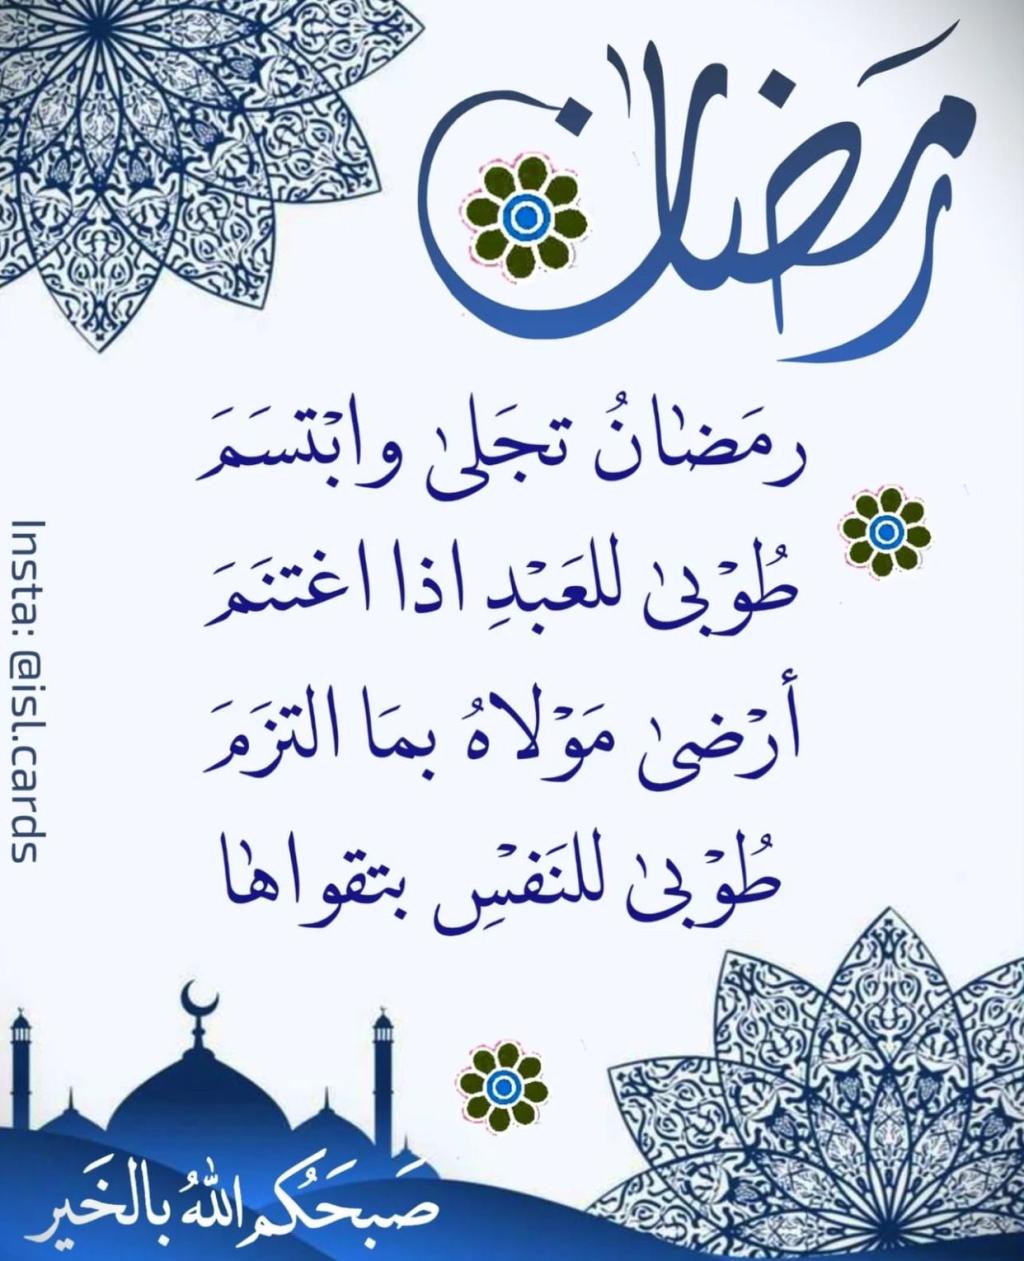 رمضان
رمَضانُ تجَلىٰ وابْتسَمَ
طُوْبىٰ للعَبْدِ اذا اغتنَمَ
أرْضىٰ مَوْلاهُ بمَا التزَمَ
طُوْبىٰ للنَفْسِ بتقواها
Insta: @isl.cards
صَبحَكُم اللهُ بالخَير